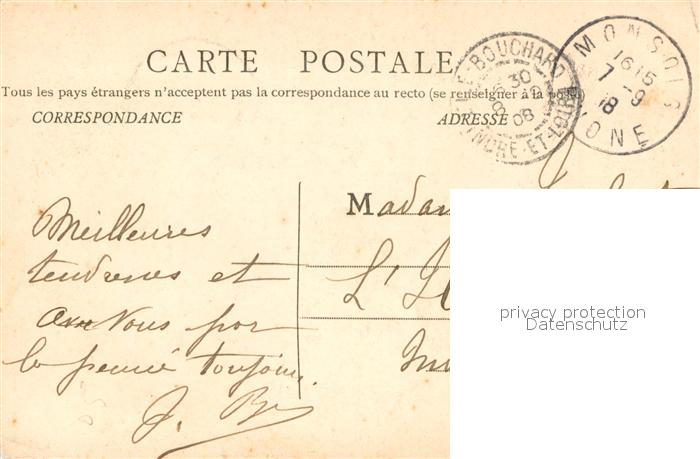 CARTE POSTALE
Tous les pays étrangers n'acceptent pas la correspondance au recto (se renseigner à la poste)
CORRESPONDANCE
ADRESSE
BOUCHARD
30
08
INDRE-ET-LOIRE
MONSOLS
1615
7-9
18
Madam
L'Il
Meilleures
tendresses et
Vous par
la pensée toujours.
J. B
privacy protection
Datenschutz